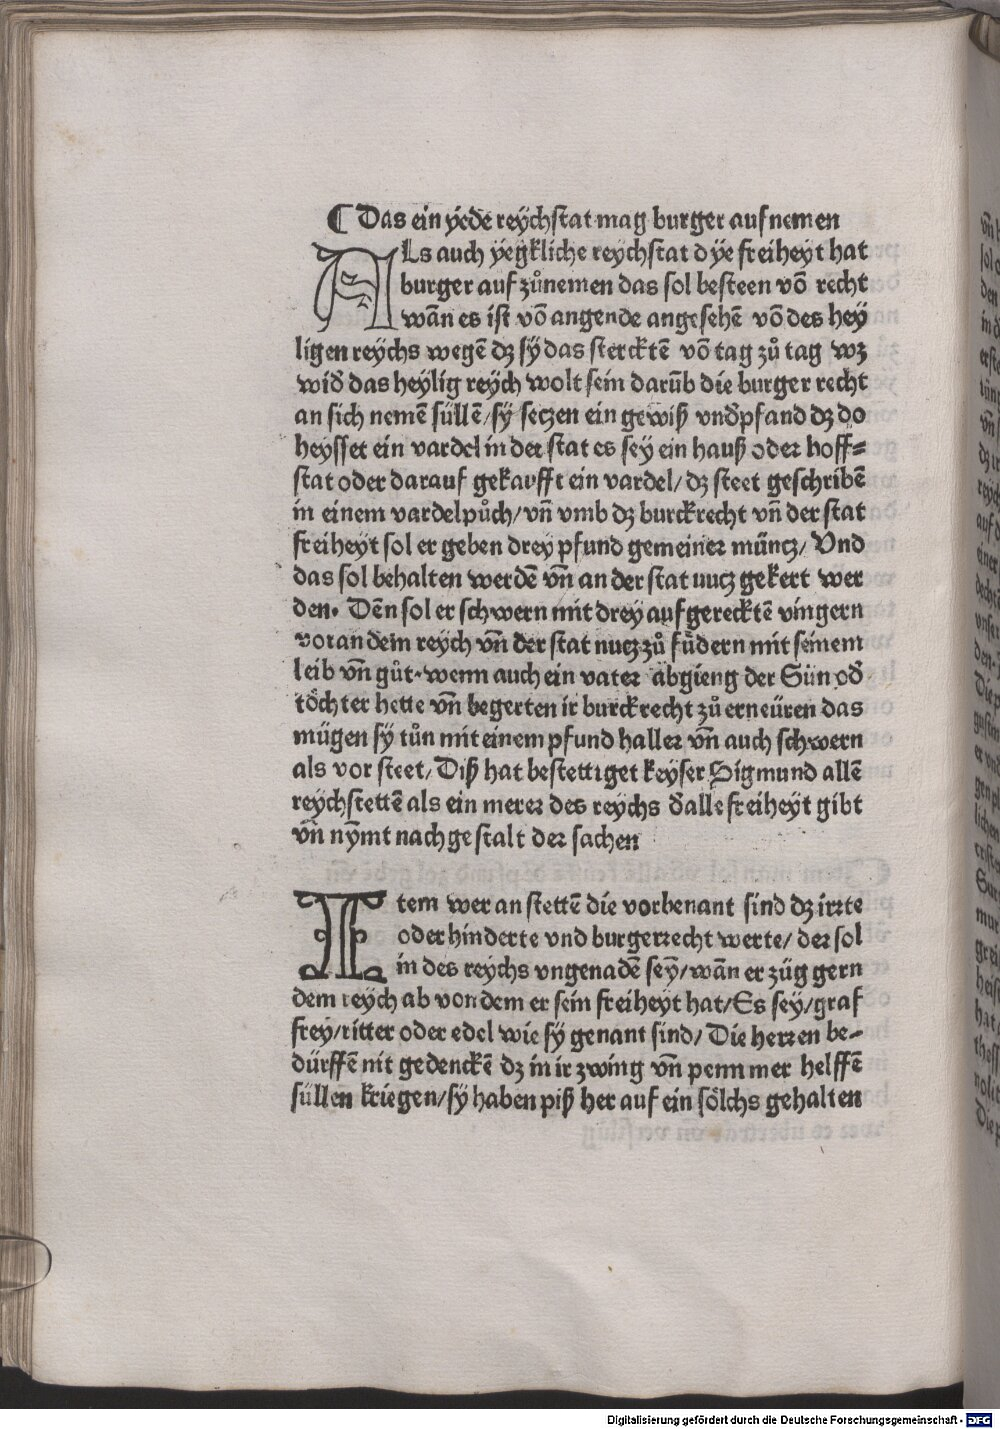 ¶ Das ein ÿede reÿchstat mag burger aufnemen
ALs auch ÿegkliche reÿchstat dÿe freiheÿt hat
burger auf zůnemen das sol besteen võ recht
wãn es ist võ angende angesehẽ võ des heÿ
ligen reÿchs wegẽ dz sÿ das stercktẽ võ tag zů tag wz
wid̕ das heÿlig reÿch wolt sein darũb die burger recht
an sich nemẽ süllẽ/sÿ seczen ein gewiß vnd̕pfand dz do
heÿsset ein vardel in der stat es sey ein hauß oder hoff⸗
stat oder darauf gekaufft ein vardel/ dz steet geschribẽ
in einem vardelpůch/ vñ vmb dz burckrecht vñ der stat
freiheÿt sol er geben drey pfund gemeiner müncz/ Vnd
das sol behalten werdẽ vñ an der stat nucz gekert wer
den. Dẽn sol er schwern mit drey aufgerecktẽ vingern
voran dem reÿch vñ der stat nucz zů füdern mit seinem
leib vñ gůt.wenn auch ein vater abgieng der Sün od̕
töchter hette vñ begerten ir burckrecht zů erneüren das
mügen sÿ tůn mit einem pfund haller vñ auch schwern
als vor steet/ Diß hat bestettiget keÿser Sigmund allẽ
reÿchstettẽ als ein merer des reÿchs d̕ alle freiheÿt gibt
vñ nÿmt nach gestalt der sachen
Item wer an stettẽ die vorbenant sind dz irrte
oder hinderte vnd burgerrecht werte/ der sol
in des reÿchs vngenadẽ seÿ/ wãn er züg gern
dem reÿch ab von dem er sein freiheÿt hat/Es sey/graf
frey/ritter oder edel wie sÿ genant sind/ Die herren be⸗
dürffẽ nit gedenckẽ dz in ir zwing vñ penn mer helffẽ
süllen kriegen/sÿ haben piß her auf ein sölchs gehalten
Digitalisierung gefördert durch die Deutsche Forschungsgemeinschaft - DFG